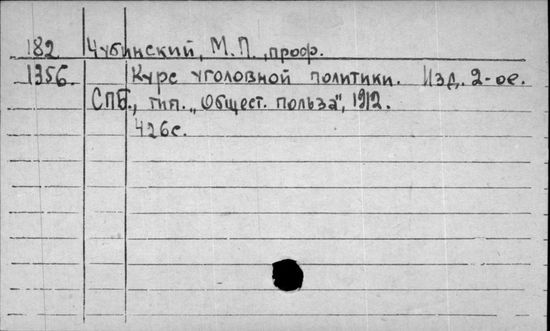 182 Чубинский, М.П., проф.
1356. Курс уголовной политики. Изд. 2-ое.
СПб., тип. „Общест. польза", 1912.
426с.